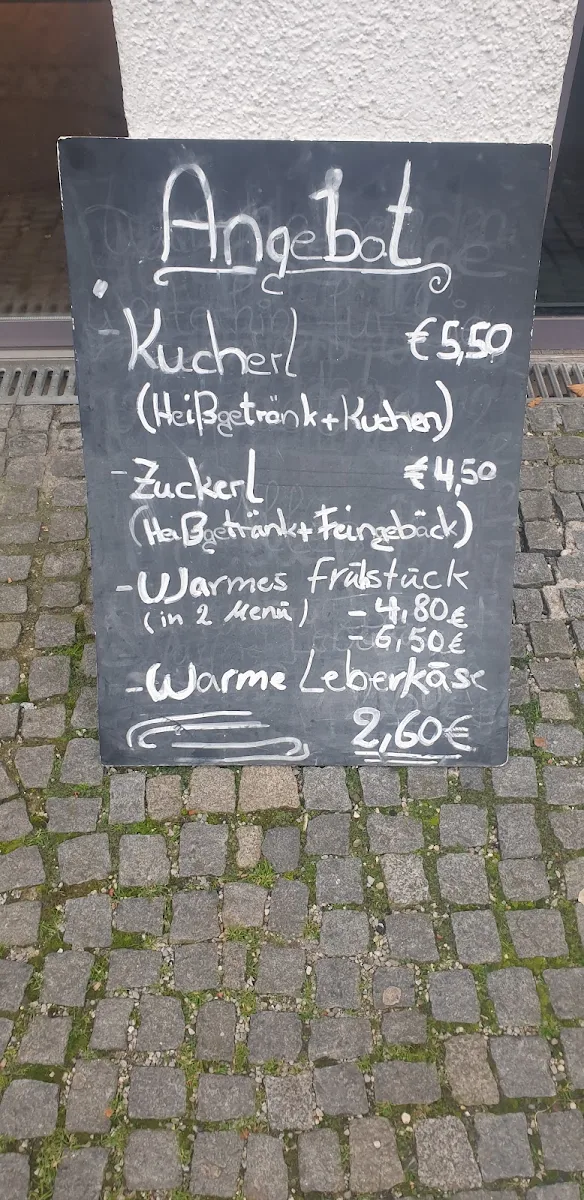 Angebot
- Kucherl €5,50
(Heißgetränk+Kuchen)
- Zuckerl €4,50
(Heißgetränk+Feingebäck)
- Warmes Frühstück
(in 2 Menü) - 4,80€
- 6,50€
- Warme Leberkäse
2,60€